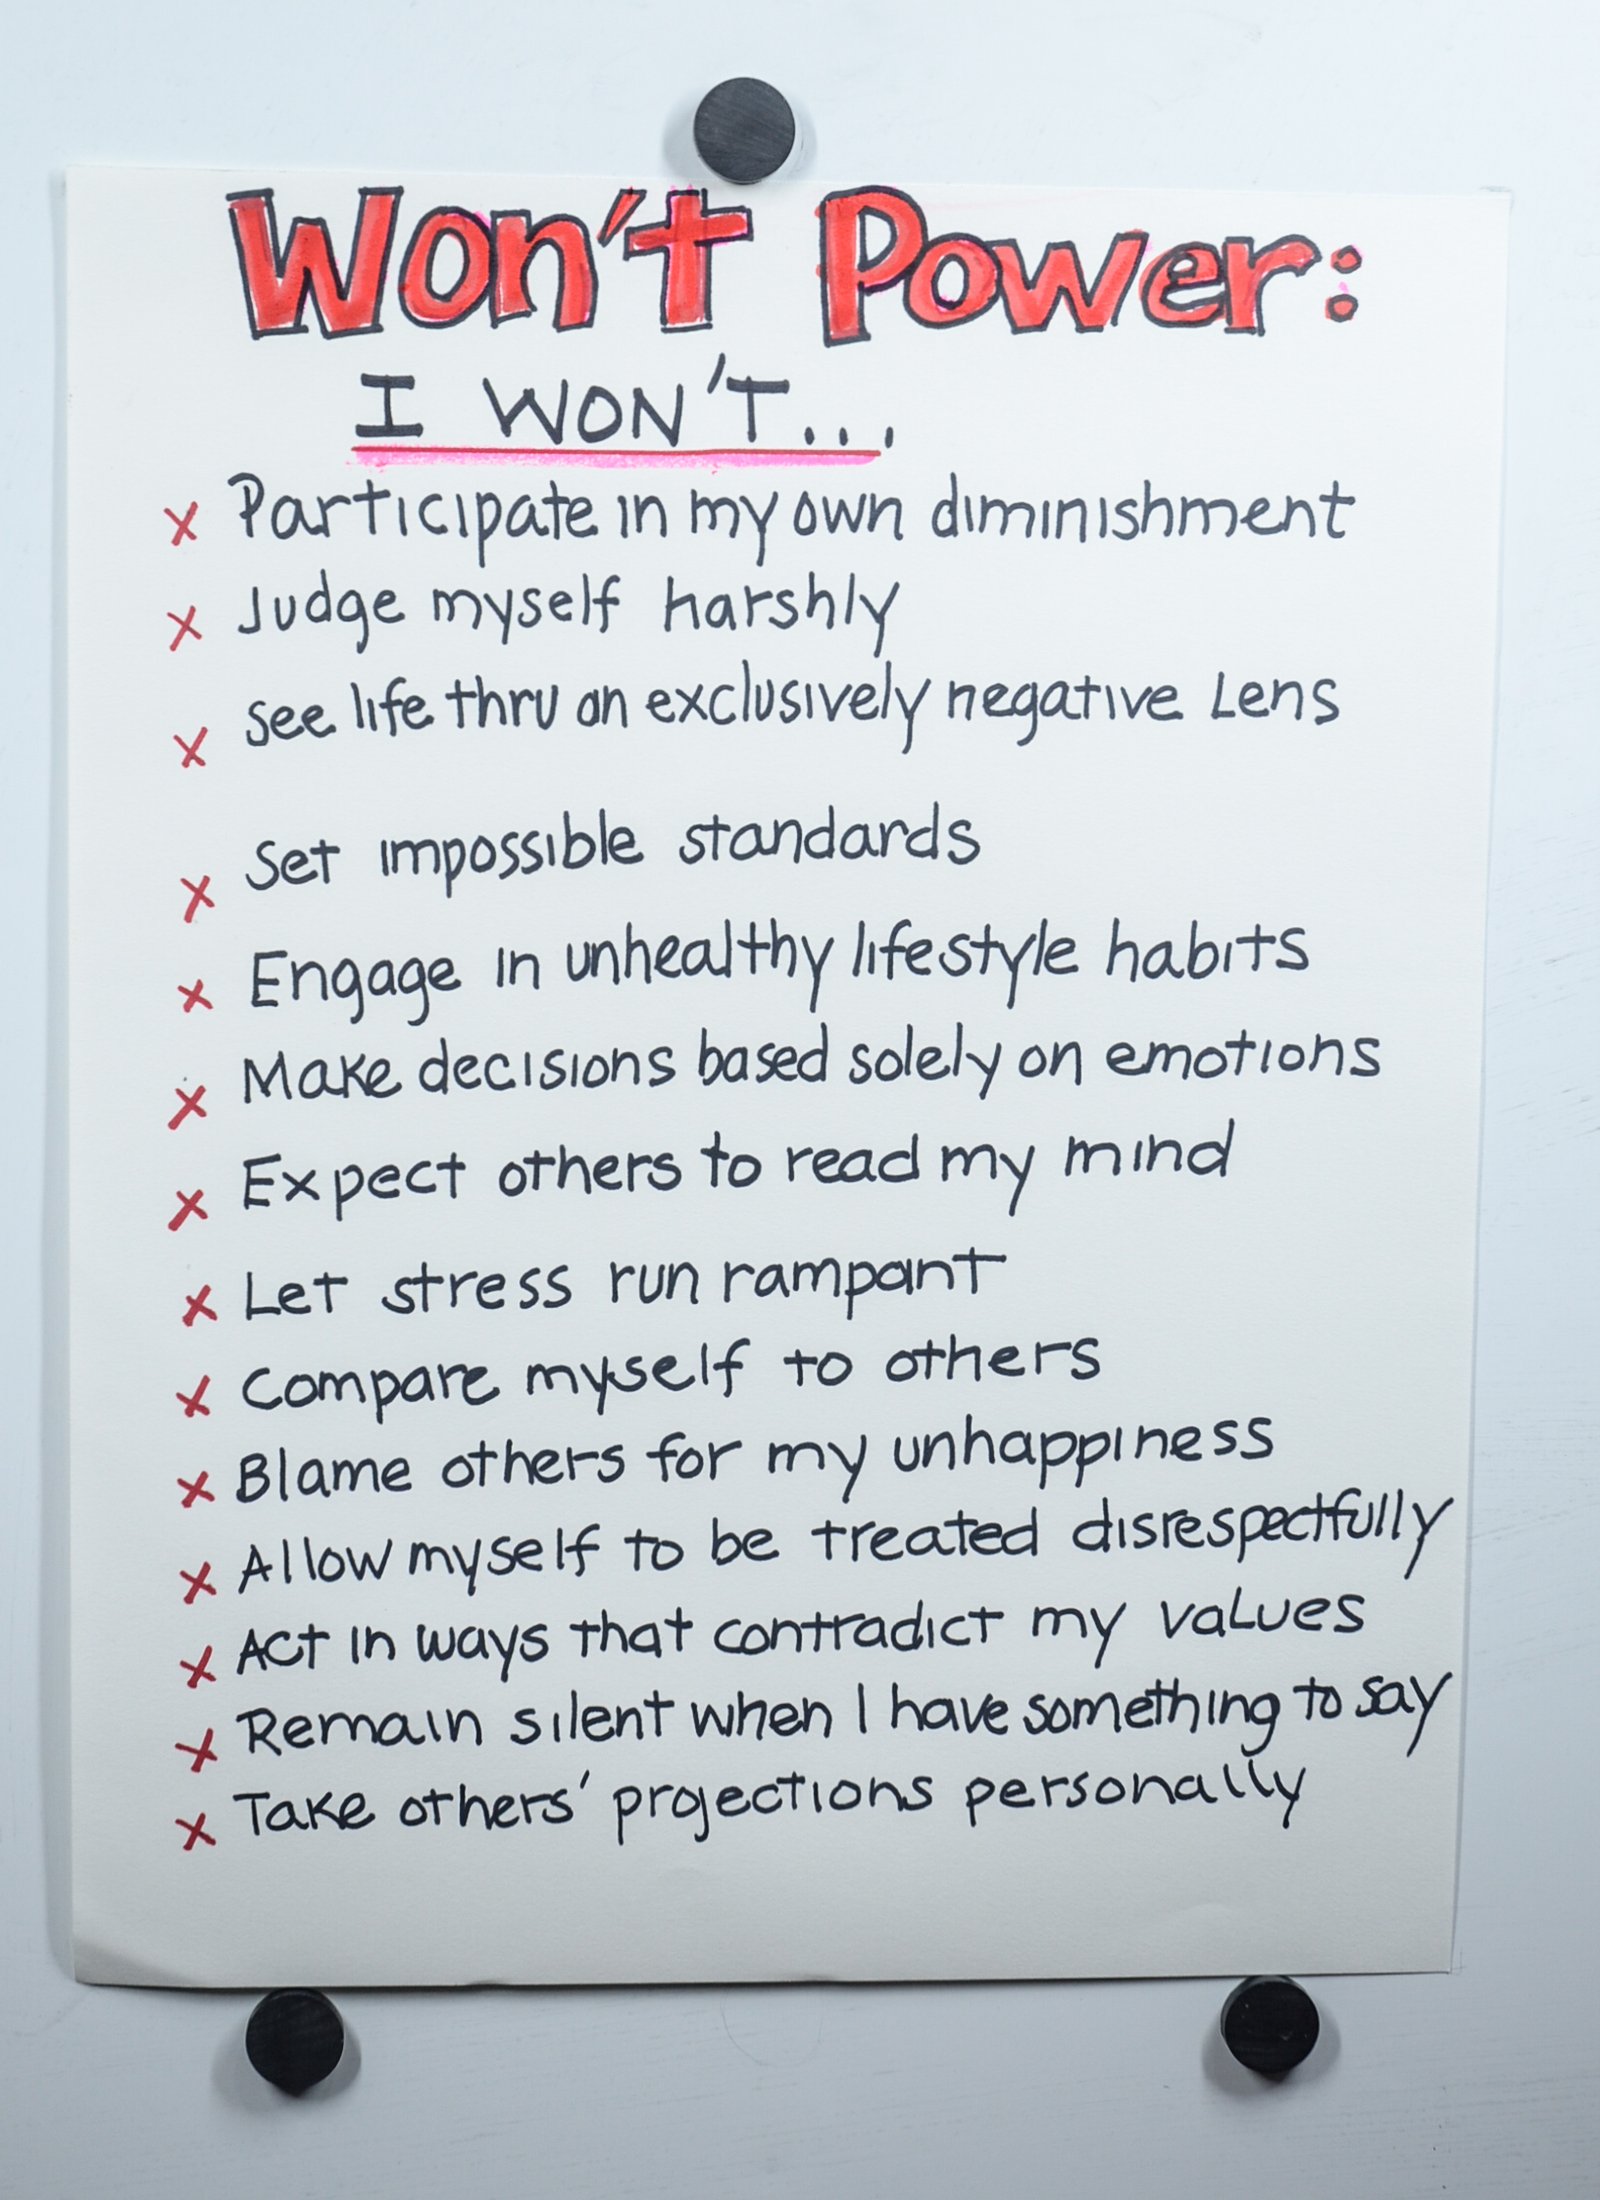 Won't Power:
I WON'T...
x Participate in my own diminishment
x Judge myself harshly
x see life thru an exclusively negative Lens
x Set impossible standards
x Engage in unhealthy lifestyle habits
x Make decisions based solely on emotions
x Expect others to read my mind
x Let stress run rampant
x Compare myself to others
x Blame others for my unhappiness
x Allow myself to be treated disrespectfully
x Act in ways that contradict my values
x Remain silent when I have something to say
x Take others' projections personally